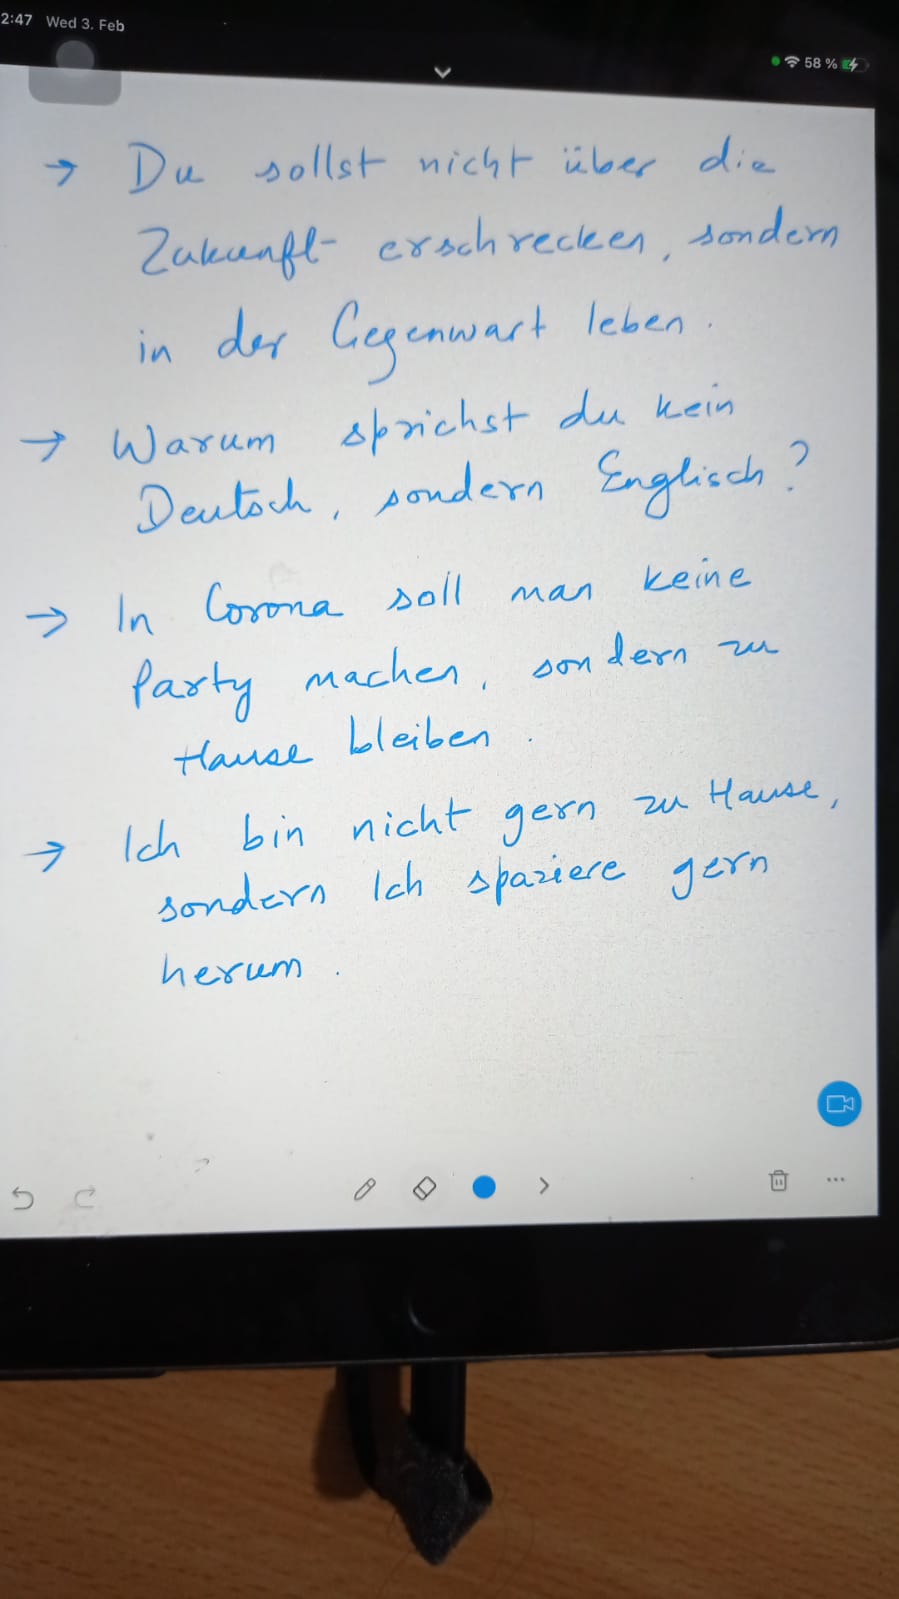 2:47 Wed 3. Feb
58 %
→ Du sollst nicht über die
Zukunft erschrecken, sondern
in der Gegenwart leben.
→ Warum sprichst du kein
Deutsch, sondern Englisch?
→ In Corona soll man keine
Party machen, sondern zu
Hause bleiben.
→ Ich bin nicht gern zu Hause,
sondern Ich spaziere gern
herum.